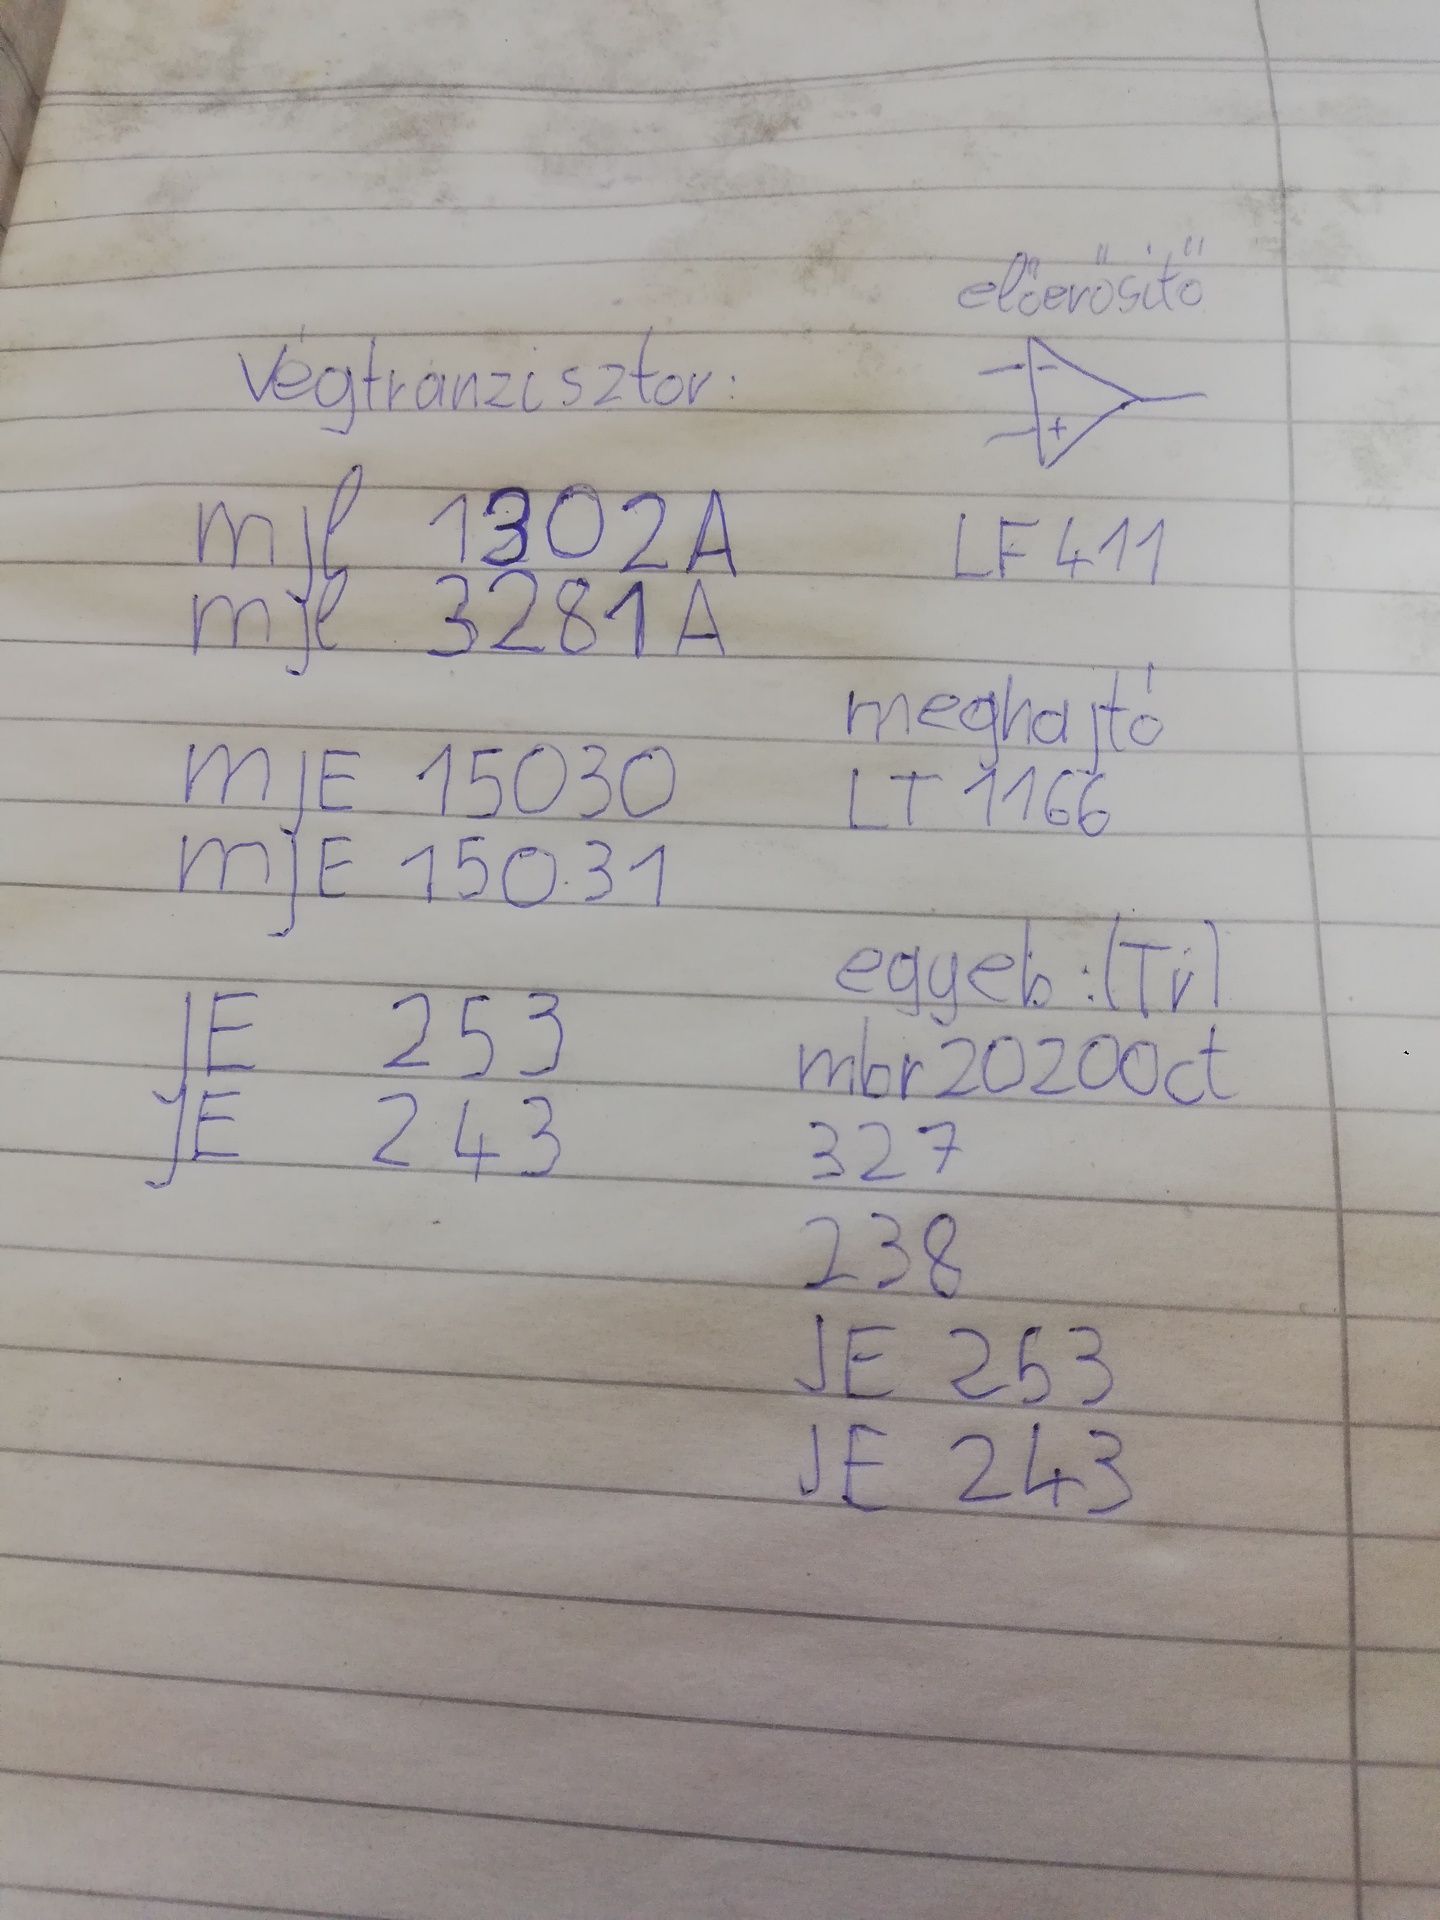 előerősitő
Végtranzisztor:
- +
mjl 1302A
LF 411
mjl 3281A
meghajtó
mjE 15030
LT 1166
mjE 15031
egyeb:(Tr)
jE 253
mbr20200ct
jE 243
327
238
JE 253
JE 243